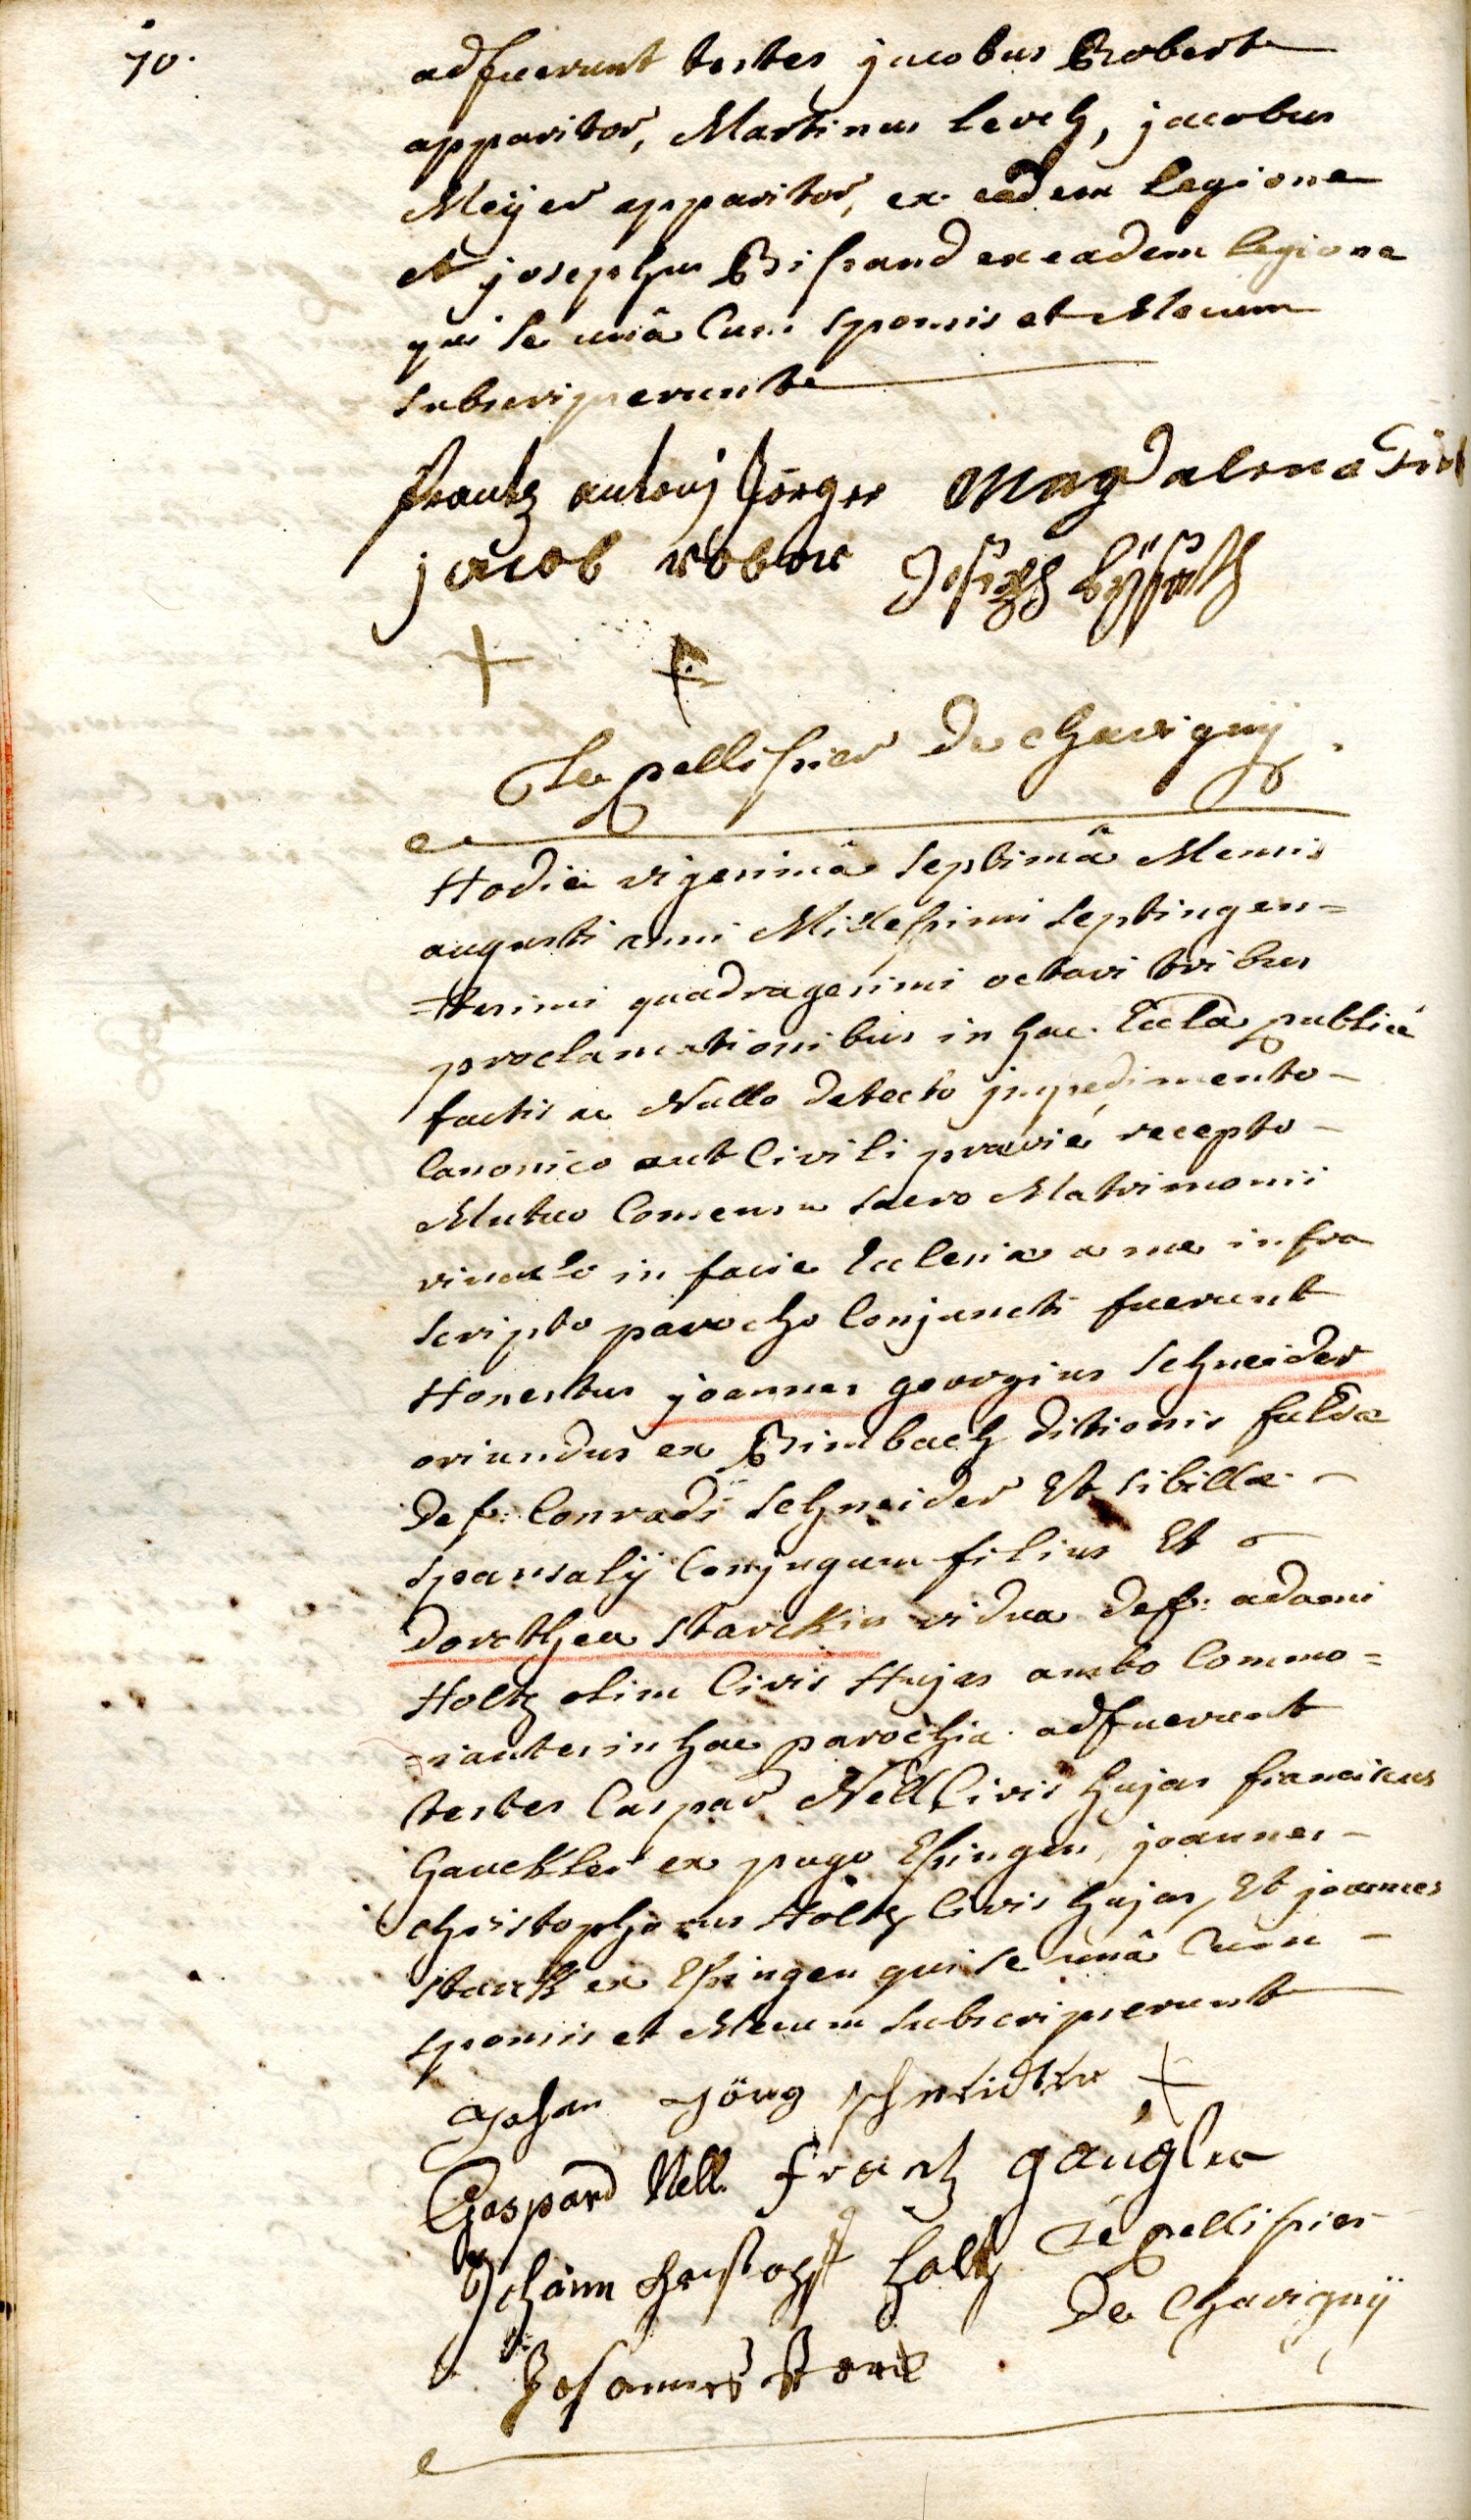 70.
adfuerunt testes jacobus Robert
apparitor, Martinus lerch, jacobus
Meijer apparitor, ex eadem legione
et josephus Bissand ex eadem legione
qui se unâ Cum sponsis et Mecum
subscripserunt
frantz antonj Jörger Magdalena
jacob robor Joseph
+ +
Le pellissier De chavignÿ.
Hodie vigesimâ septimâ Mensis
augusti anni Millessimi septingen=
=tesimi quadragesimi octavi tribus
proclamationibus in hac Eccla publicé
factis ac Nullo detecto jmpedimento
Canonico aut Civili praevié recepto
Mutuo Consensu sacro Matrimonii
vinculo in facie Ecclesiae a me infra
scripto parocho Conjuncti fuerunt
Honestus joannes georgius schneider
oriundus ex Bimbach ditionis fuldae
Def: Conradi schneider Et sibillae
spansalij Conjugum filius Et
dorothea starckin vidua def: adami
Holtz olim Civis Hujas ambo Commo=
=rantes in hac parochia. adfuerunt
testes Caspar Nell Civis hujas franciscus
Gauckler ex pago Essingen, joannes
christophorus Holtz Civis hujas, Et joannes
starck ex Essingen qui se unâ Cum
sponsis et Mecum subscripserunt
Johan Jörg schneider +
Gaspard Nell frantz gaügler
Johann christoph holtz Le pellissier
De Chavignÿ
Johannes starck